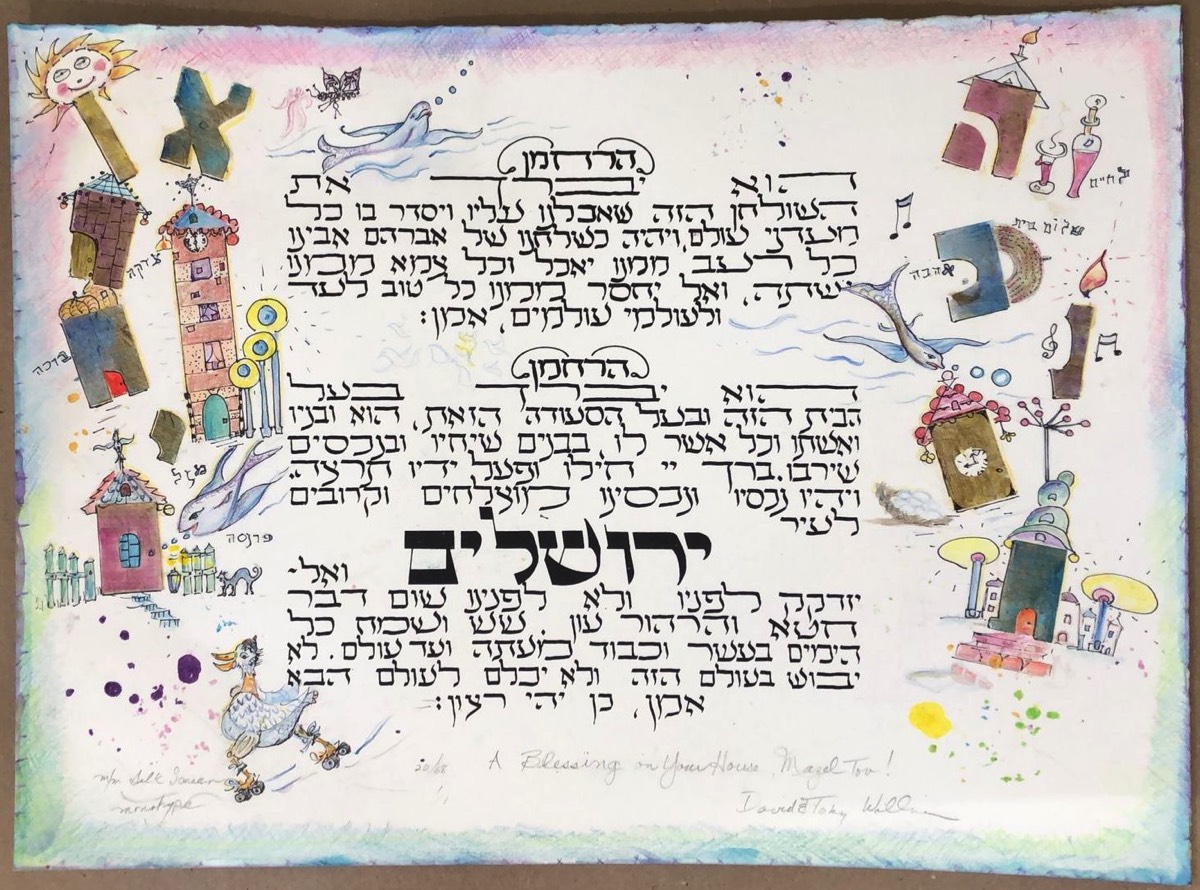 לחיים
שלום בית
אהבה
צדקה
ברכה
מזל
פרנסה
הרחמן
הוא יברך את
השולחן הזה שאכלנו עליו, ויסדר בו כל
מעדני עולם, ויהיה כשלחנו של אברהם אבינו
כל רעב ממנו יאכל וכל צמא ממנו
ישתה, ואל יחסר ממנו כל טוב לעד
ולעולמי עולמים, אמן:
הרחמן
הוא יברך בעל
הבית הזה ובעל הסעודה הזאת, הוא ובניו
ואשתו וכל אשר לו, בבנים שיחיו ובנכסים
שירבו. ברך יי חילו ופעל ידיו תרצה,
ויהיו נכסיו ונכסינו מוצלחים וקרובים
לעיר
ירושלים
ואל-
יזדקק לפניו ולא לפנינו שום דבר
חטא והרהור עון. שש ושמח כל
הימים בעשר וכבוד מעתה ועד עולם. לא
יבוש בעולם הזה ולא יכלם לעולם הבא
אמן, כן יהי רצון:
A Blessing on Your House, Mazel Tov!
m/m Silk Screen
monotype
David & Toby